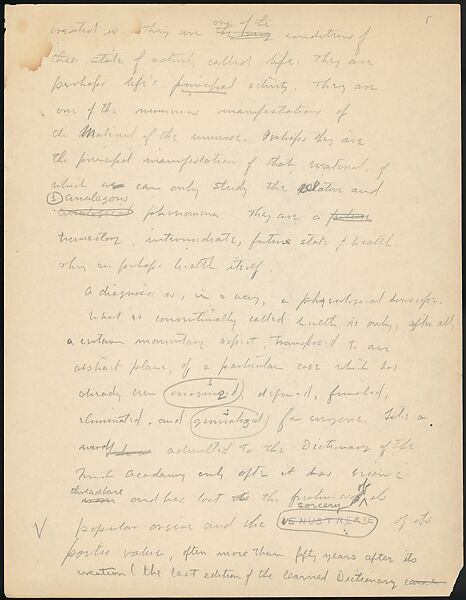 5
created is. They are one of the conditions of
that state of activity called life. They are
perhaps life's principal activity. They are
one of the numerous manifestations of
the Material of the universe. Perhaps they are
the principal manifestation of that material, of
which we can only study the relative and
analogous
phenomena. They are a
transitory, intermediate, future state of health.
They are perhaps health itself.
A diagnosis is, in a way, a physiological horoscope.
What is conventionally called health is only, after all,
a certain momentary aspect, transposed to an
abstract plane, of a particular case which has
already been recognized, defined, finished,
eliminated, and generalized for everyone. Like a
word admitted to the Dictionary of the
French Academy only after it has become
threadbare and has lost the freshness of its
popular origin and the sorcery VENUSTERIE of its
poetic value, often more than fifty years after its
creation (the last edition of the learned Dictionary